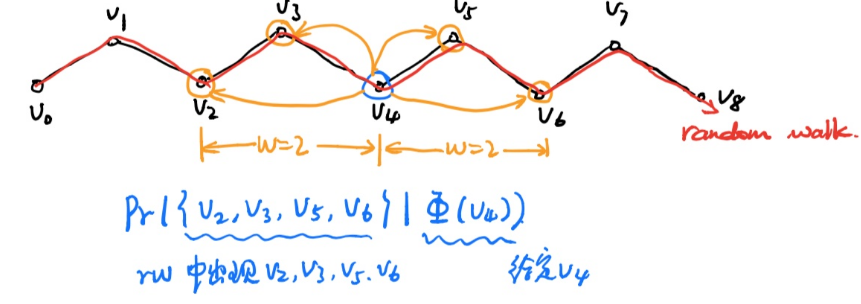 V1 V3 V5 V7
V0 V2 V4 V6 V8
random walk.
w=2 w=2
Pr({V2, V3, V5, V6} | Φ(V4))
rw 中出现 V2, V3, V5. V6 给定 V4